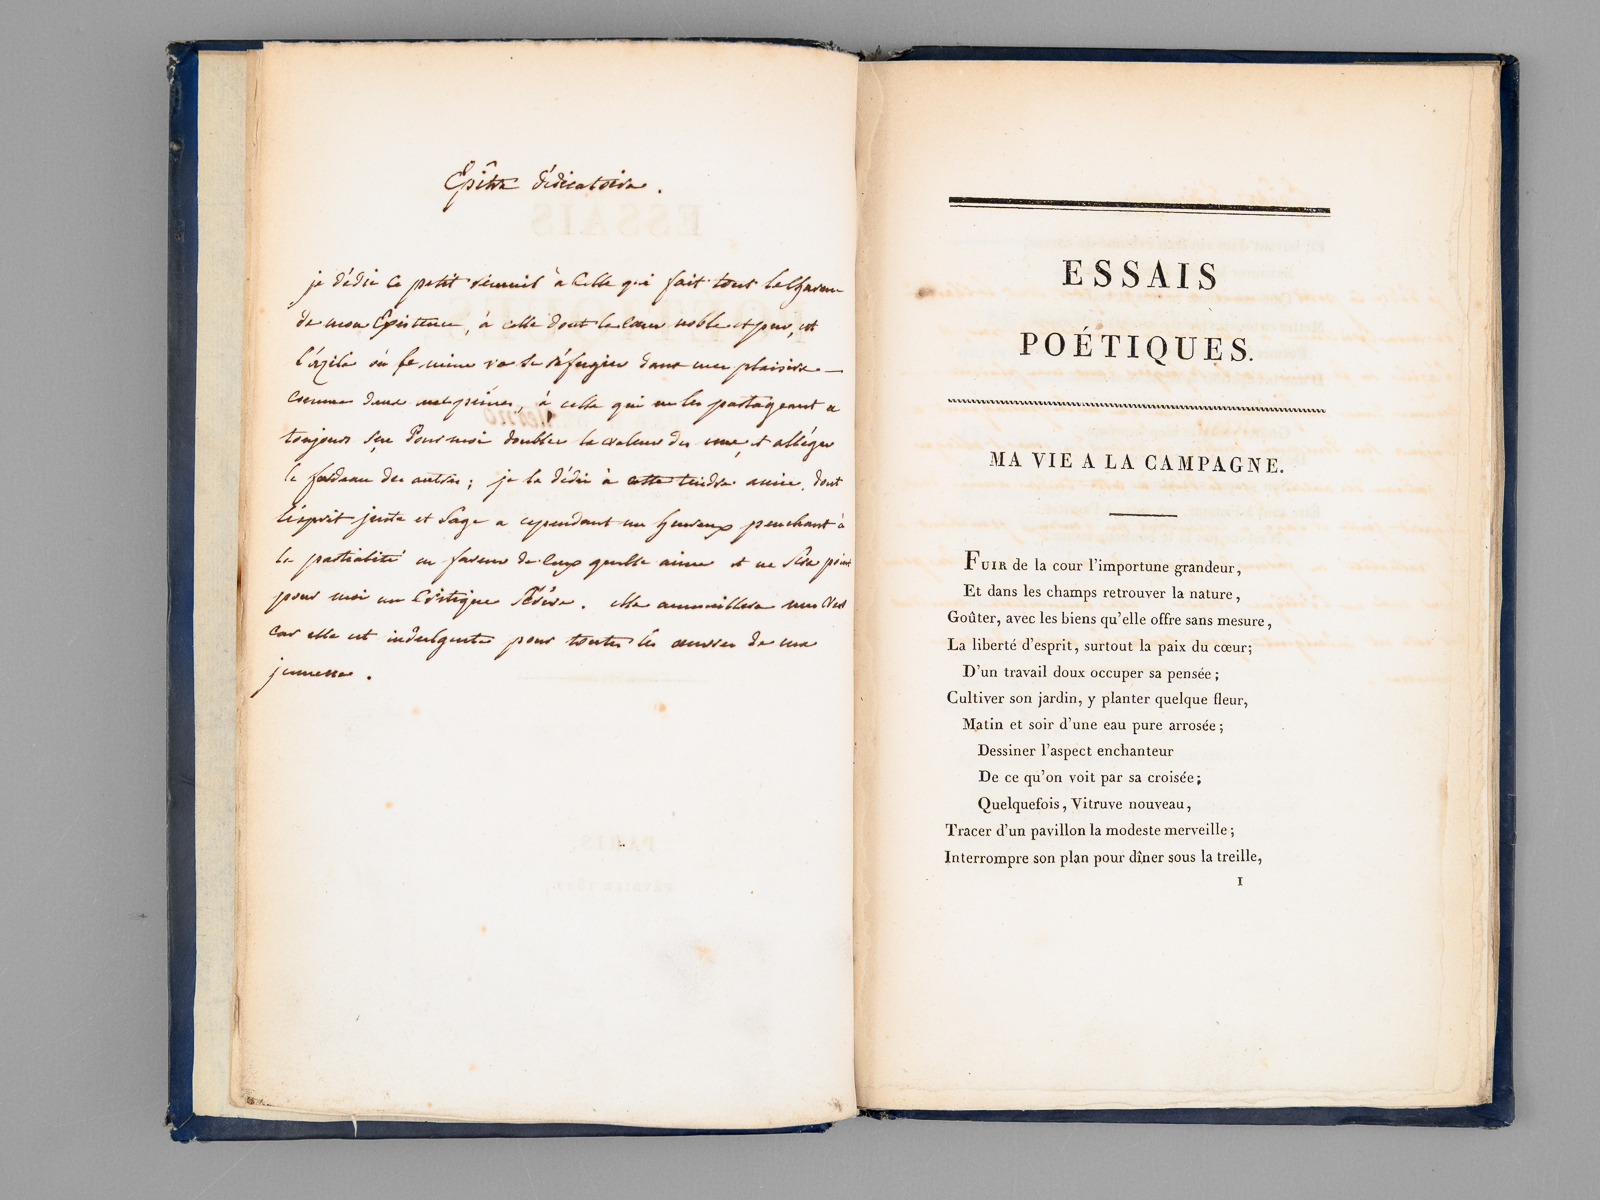 Epître dédicatoire.
je dédie ce petit recueil à celle qui fait tout le charme
de mon Existence, à celle dont le cœur noble et pur, est
l'azile où le mien va se réfugier dans mes plaisirs
comme dans mes peines, à celle qui en les partageant a
toujours sçu Pour moi doubler la valeur des uns, et alléger
le fardeau des autres; je le dédie à cette tendre amie, dont
l'esprit juste et sage a cependant un heureux penchant à
la partialité en faveur de ceux qu'elle aime et ne sera point
pour moi un Critique Sévère. elle accueillera mes vers
car elle est indulgente pour toutes les œuvres de ma
jeunesse.
ESSAIS
POÉTIQUES.
MA VIE A LA CAMPAGNE.
FUIR de la cour l'importune grandeur,
Et dans les champs retrouver la nature,
Goûter, avec les biens qu'elle offre sans mesure,
La liberté d'esprit, surtout la paix du cœur;
D'un travail doux occuper sa pensée;
Cultiver son jardin, y planter quelque fleur,
Matin et soir d'une eau pure arrosée;
Dessiner l'aspect enchanteur
De ce qu'on voit par sa croisée;
Quelquefois, Vitruve nouveau,
Tracer d'un pavillon la modeste merveille;
Interrompre son plan pour dîner sous la treille,
1